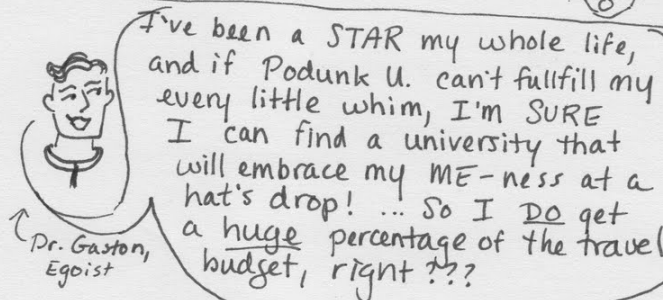 I've been a STAR my whole life,
and if Podunk U. can't fullfill my
every little whim, I'm SURE
I can find a university that
will embrace my ME-ness at a
hat's drop! ... So I DO get
a huge percentage of the travel
budget, right???
Dr. Gaston,
Egoist